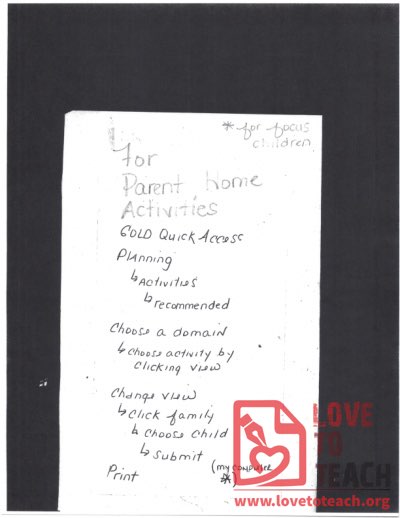 * for focus
children
For
Parent Home
Activities
GOLD Quick Access
Planning
↳ Activities
↳ recommended
Choose a domain
↳ choose activity by
clicking view
Change view
↳ Click family
↳ choose child
↳ Submit
(my computer
*)
Print
LOVE
TO
TEACH
www.lovetoteach.org